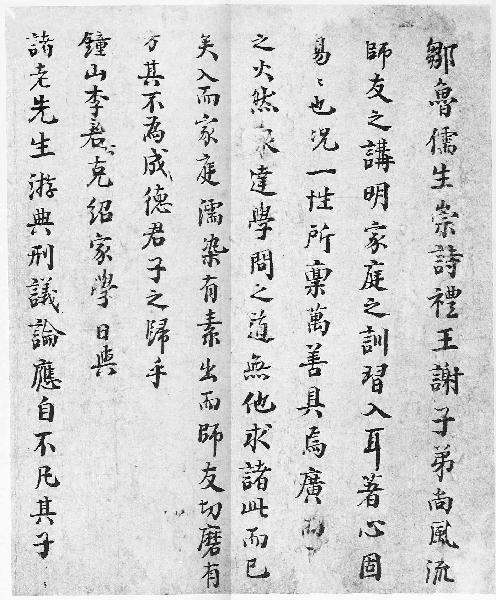 鄒魯儒生崇詩禮王謝子弟尚風流
師友之講明家庭之訓習入耳著心固
易〻也况一性所稟萬善具焉廣而
之火然泉達學問之道無他求諸此而已
矣入而家庭濡染有素出而師友切磨有
方其不為成德君子之歸乎
鐘山李君克紹家學日與
諸老先生游典刑議論應自不凡其子